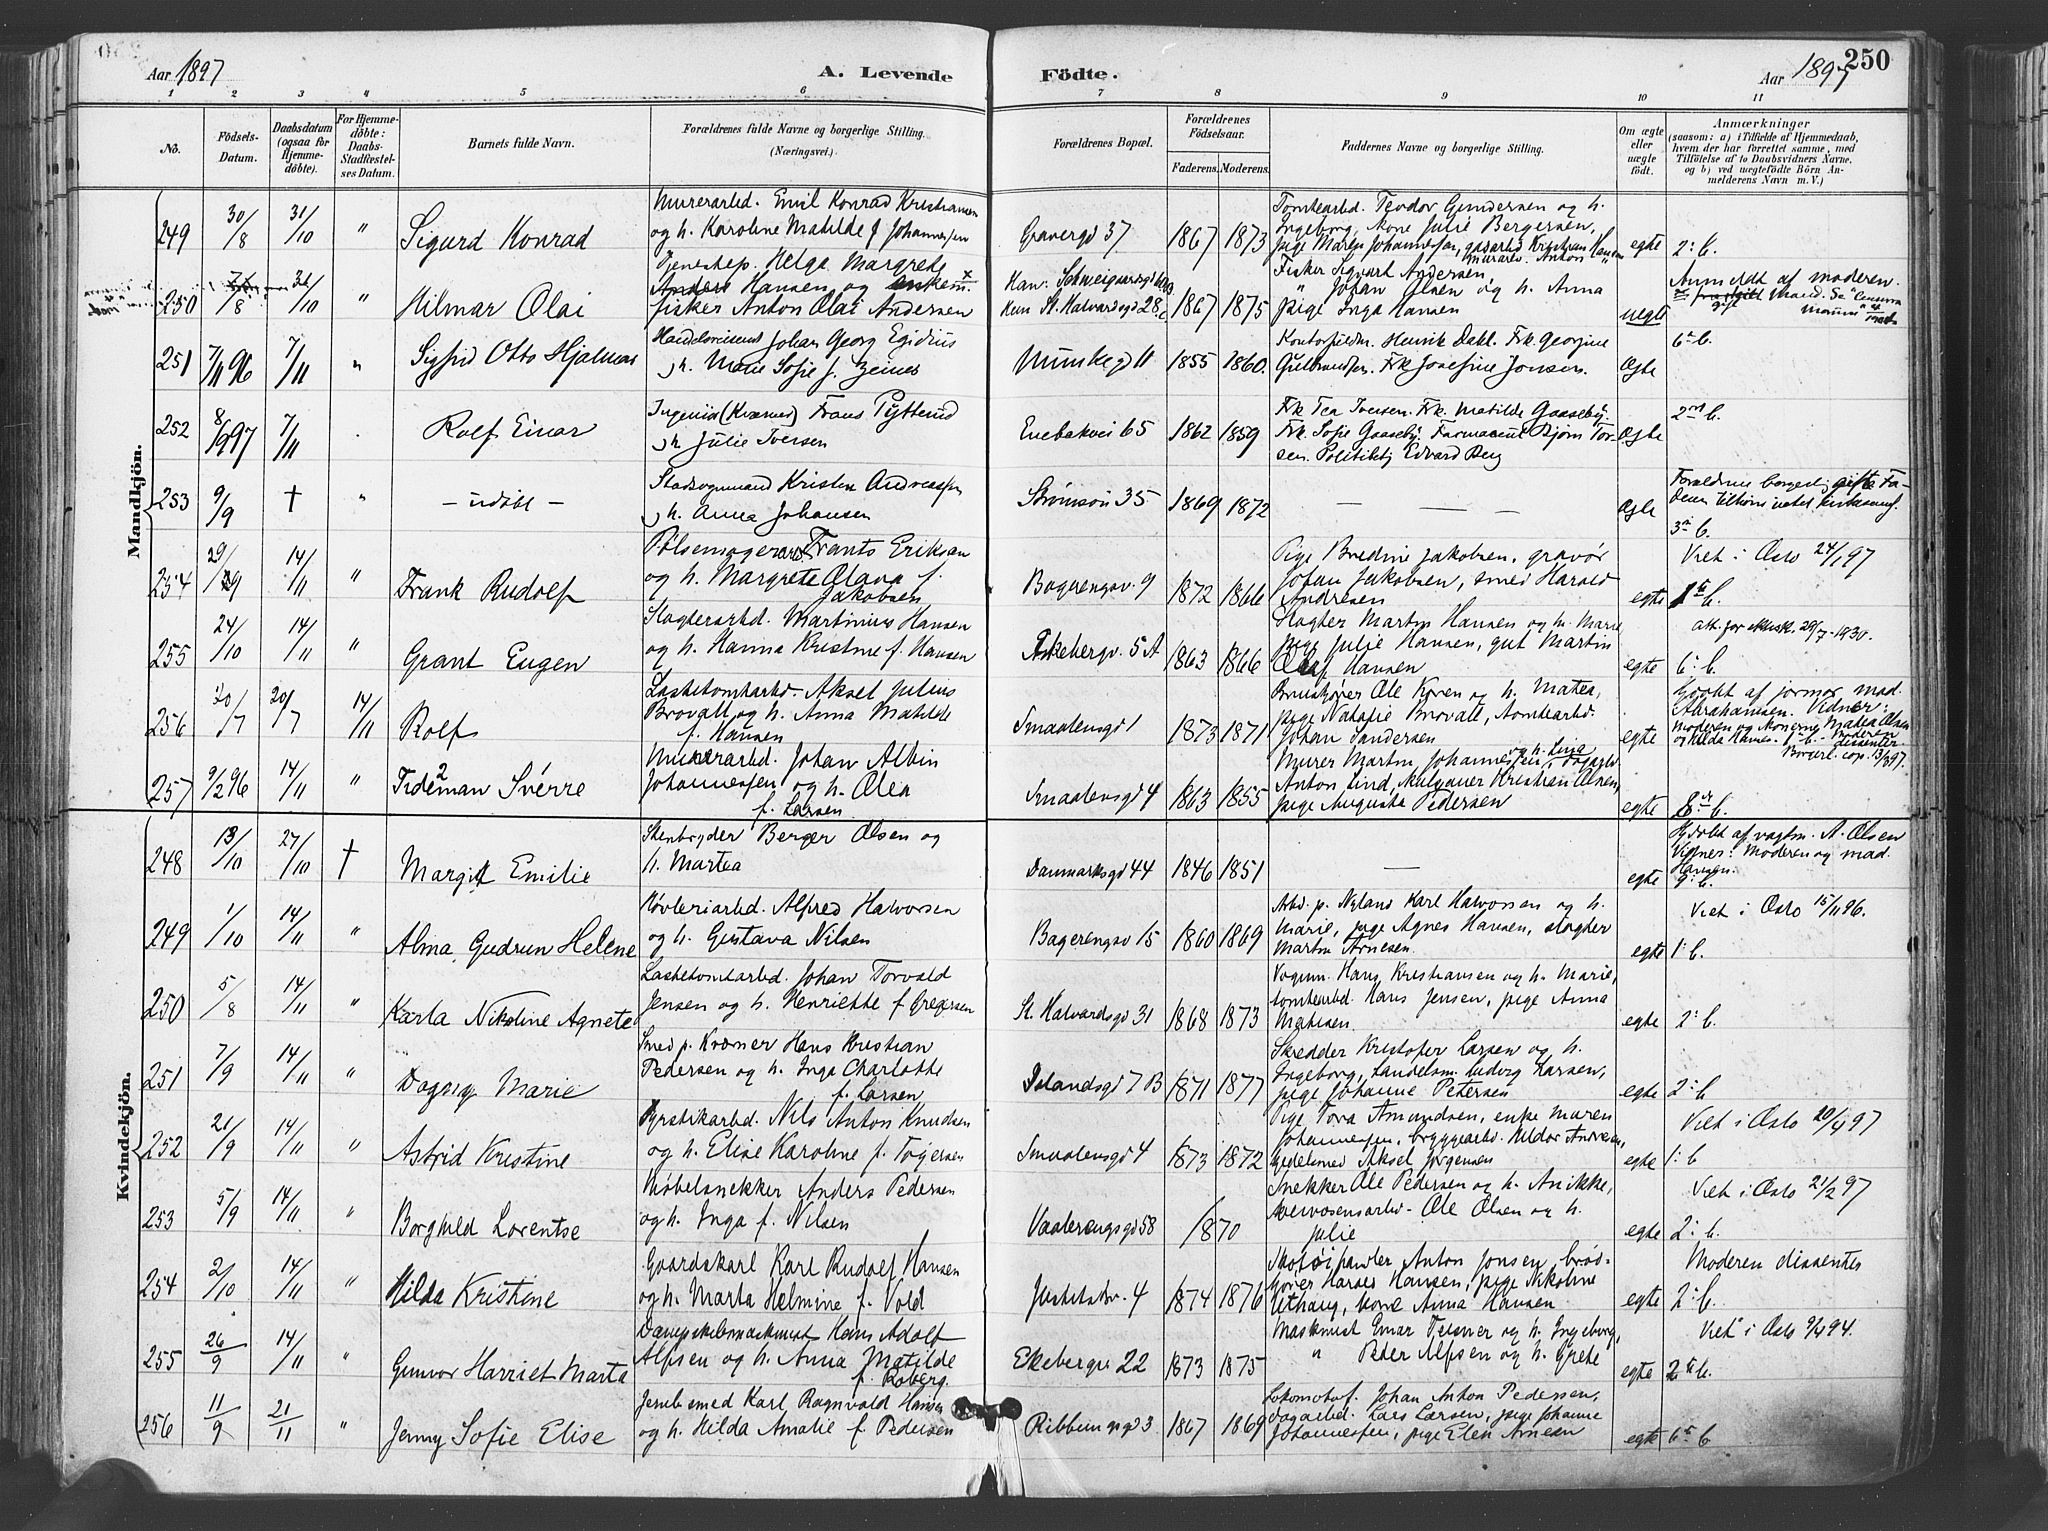 Aar 1897
A. Levende
Födte.
Aar 1897
250
1 2 3 4 5 6 7 8 9 10 11
No.
Födsels-Datum.
Daabsdatum (ogsaa for Hjemmedöbte).
For Hjemmedöbte: Daabs-Stadfæstelses Datum.
Barnets fulde Navn.
Forældrenes fulde Navne og borgerlige Stilling.
(Næringsvei.)
Forældrenes Bopæl.
Forældrenes Födselsaar.
Faderens. Moderens.
Faddernes Navne og borgerlige Stilling.
Om ægte eller uægte födt.
Anmærkninger
(saasom: a) i Tilfælde af Hjemmedaab, hvem der har forrettet samme, med Tilföielse af to Daabsvidners Navne, og b) ved uægtefödte Börn Anmelderens Navn m. V.)
Mandkjön.
249 30/8 31/10 " Sigurd Konrad
Murerarbd. Emil Konrad Kristiansen
og h. Karoline Matilde f. Johannessen
Gravergd 37 1867 1873
Tomtearbd. Teodor Gundersen og h.
Ingeborg, kone Julie Bergersen,
pige Maren Johannesen, gasarbd Kristian Hansen
egte 2: b.
250 /8 31/10 " Hilmar Olai
Tjenestep. Helga Margrete
Hansen og enkem.
fisker Anton Olai Andersen
St. Halvardsgd 28c 1867 1875
Fisker Sigvart Andersen, murarb. Anton
" Johan Olsen og h. Anna
Pige Inga Hansen
uegte
Anmeldt af moderen.
251 7/11 96 7/11 " Sigfrid Otto Hjalmar
Handelsreisende Johan Georg Egidius
og h. Marie Sofie f. Zeiner
Munkegd 11 1855 1860.
Kontorfuldm. Henrik Dahl. Frk. Georgine
Gulbrandsen. Frk Josefine Jonsen.
Ægte 6: b.
252 8/9 97 7/11 Rolf Einar
Ingeniør (Kværner) Frans Pytterud
og h. Julie Iversen
Enebakvei 65 1862 1859
Frk Tea Iversen. Frk. Matilde Gaaseby.
Frk. Sofie Gaaseby. Farmaceut Bjørn Tor-
sen. Politibetj Edvard Berg
Ægte 2 b.
253 9/9 † " — udöbt —
Stadsvognmand Kristen Andreassen
og h. Anna Johansen
Strömsön 35 1869 1872
— — —
Ægte
Forældrene borgerlig gifte Fa-
deren tilhører intet kirkesamf.
3 b.
254 29/9 14/11 " Frank Rudolf
Pølsemagerarb. Frants Eriksen
og h. Margrete Olava f.
Jakobsen
Bøgerengsv. 9 1872 1866
Pige Bredine Jakobsen, gravør
Johan Jakobsen, smed Harald
Andresen
egte
Viet i Oslo 24/1 97
1ste b.
255 24/10 14/11 " Grant Eugen
Slagterarbd. Martinius Hansen
og h. Hanna Kristine f. Hansen
Ekebergv. 5 A 1863 1866
Slagter Martin Hansen og h. Marie
pige Julie Hansen, gut Martin
Olaf Hansen
egte
att. for ektsk. 29/7-1930.
6: b.
256 20/7 20/7 14/11 Rolf
Lastetomtarbd. Aksel Julius
Brovall og h. Anna Matilde
f. Hansen
Smaalensgd 1 1873 1871
Bruskjører Ole Koren og h. Matea,
pige Natalie Brovall, tomtearbd.
Johan Sandersen
egte
Hjdøbt af jormor mad.
Abrahamsen. Vidner:
Moderen og konerne Matea Olsen
og Hilda Hansen. Moderen
dissenter
257 9/2 96 14/11 " Tideman Sverre
Murerarbd. Johan Albin
Johannessen og h. Olea
f. Larsen
Smaalensgd 4 1863 1855
Murer Martin Johannessen og h. Lina, fagarbd
Anton Lind, Kristian Olsen,
pige Augusta Pedersen
egte 8 b.
Kvindekjön.
248 13/10 27/10 † Margit Emilie
Stenbryder Berger Olsen og
h. Martea
Danmarksgd 44 1846 1851
—
egte
Hjdøbt af vagtm. A. Olsen
Vidner: Moderen og mad.
Hansen.
9: b.
249 1/10 14/11 " Alma Gudrun Helene
Høvleriarbd. Alfred Halvorsen
og h. Gustava Nilsen
Bøgerengsv 15 1860 1869
Arbd. p. Nyland Karl Halvorsen og h.
Marie, pige Agnes Hansen, slagter
Martin Arnesen.
egte
Viet i Oslo 15/11 96.
1: b.
250 5/8 14/11 " Karla Nikoline Agnete
Lastetomtarbd. Johan Torvald
Jensen og h. Henriette f. Gregersen
St. Halvardsgd 31 1868 1873
Vognm. Hans Kristiansen og h. Marie,
tomtearbd. Hans Jensen, pige Anna
Matisen
egte 2: b.
251 7/9 14/11 " Dagny Marie
Smed p. Kværner Hans Kristian
Pedersen og h. Inga Charlotte
f. Larsen
Islandsgd 7 B 1871 1877
Skredder Kristofer Larsen og h.
Ingeborg, handelsm. Ludvig Larsen,
pige Johanne Petersen
egte 2: b
252 21/9 14/11 " Astrid Kristine
Fyrstikarbd. Nils Anton Knudsen
og h. Elise Karoline f. Togersen
Smaalensgd 4 1873 1872
Pige Tora Amundsen, enke Maren
Johannesen, bryggearbd. Hildor Andresen,
Aksel Jørgensen
egte
Viet i Oslo 20/4 97
1: b
253 5/9 14/11 " Borghild Lorentse
Møbelsnekker Anders Pedersen
og h. Inga f. Nilsen
Vaalerengsgd 58 1870
Snekker Ole Pedersen og h. Anikke,
Ole Olsen og h.
Julie
egte
Viet i Oslo 21/2 97
2: b.
254 2/10 14/11 " Hilda Kristine
Gaardskarl Karl Rudolf Hansen
og h. Marta Helmine f. Vold
4 1874 1876
Anton Jonsen, brød-
kjører Harald Hansen, pige Nikoline
Uthaug, kone Anna Hansen
egte
Moderen dissenter
2: b.
255 26/9 14/11 " Gunvor Harriet Marta
Dampskibsmaskinist Hans Adolf
Alfsen og h. Anna Matilde
f. Roberg.
Ekebergv 22 1873 1875
Maskinist Einar Teisner og h. Ingeborg,
" Peder Alfsen og h. Grete
egte
Viet i Oslo 9/4 94.
2 b.
256 11/9 21/11 " Jenny Sofie Elise
Jernb. smed Karl Ragnvald Hansen
og h. Hilda Amalie f. Pedersen
Ribbungsgd 3 1867 1869
Lokomotivf. Johan Anton Pedersen,
dagarbd. Lars Larsen, pige Johanne
Johannessen, pige Elen Arnesen
egte 6 b